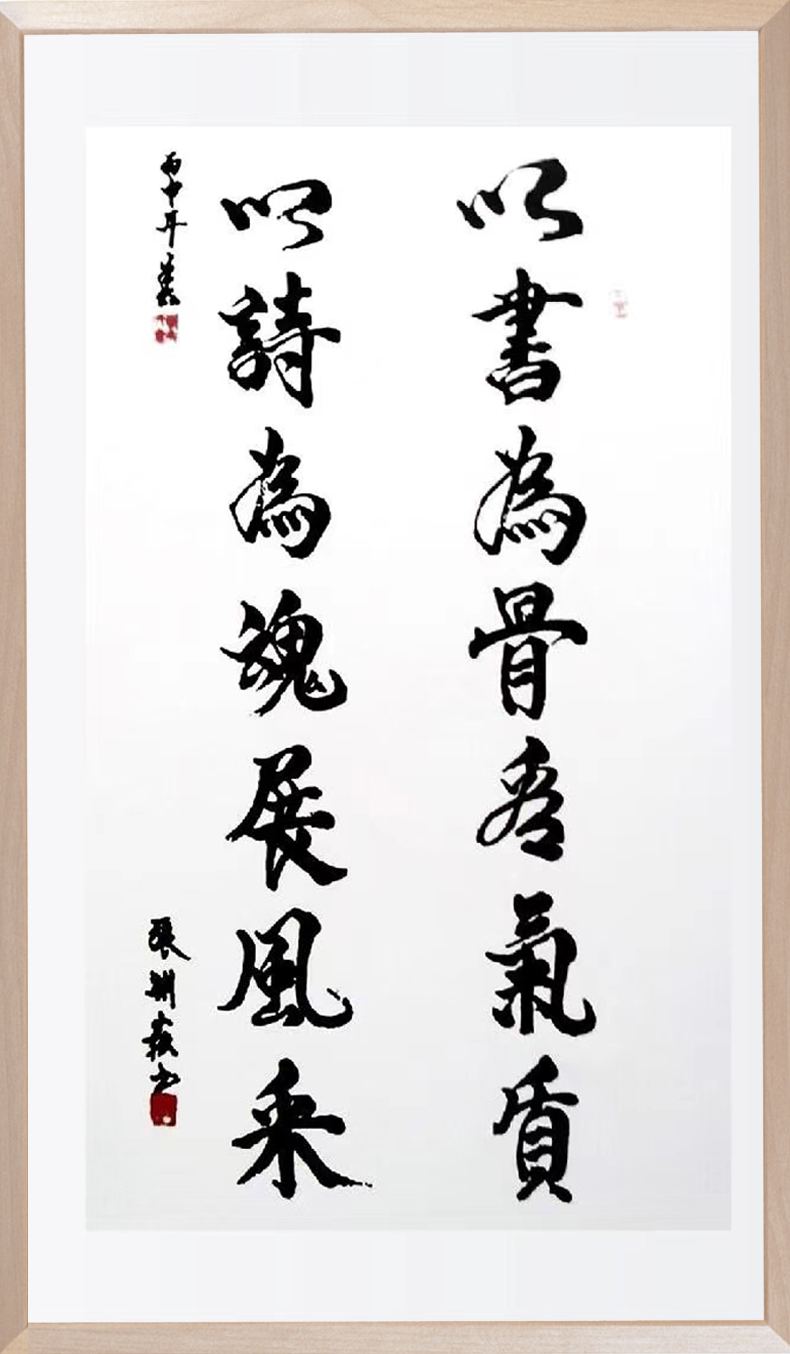 以書為骨秀氣質
以詩為魂展風采
丙申年
張